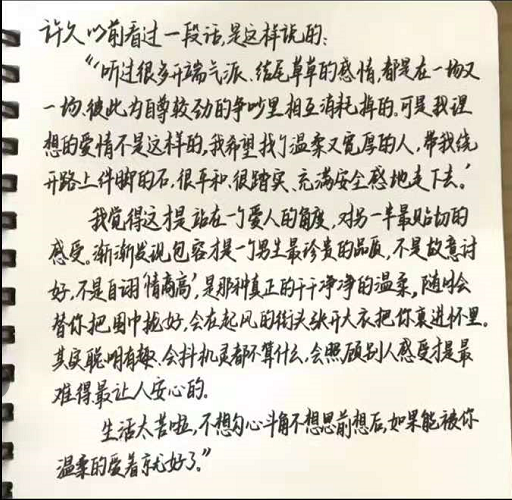 许久以前看过一段话,是这样说的:
“听过很多开端气派、结尾草草的感情,都是在一场又
一场、彼此为自尊较劲的争吵里相互消耗掉的。可是我理
想的爱情不是这样的,我希望找个温柔又宽厚的人,带我绕
开路上绊脚的石,很平和、很踏实、充满安全感地走下去。”
我觉得这才是站在一个爱人的角度,对另一半最贴切的
感受。渐渐发现包容才是一个男生最珍贵的品质,不是故意讨
好,不是自诩‘情商高’,是那种真正的干干净净的温柔。随时会
替你把围巾拢好,会在起风的街头张开大衣把你裹进怀里。
其实聪明有趣、会抖机灵都不算什么,会照顾别人感受才是最
难得最让人安心的。
生活太苦啦,不想勾心斗角不想思前想后,如果能被你
温柔的爱着就好了。”